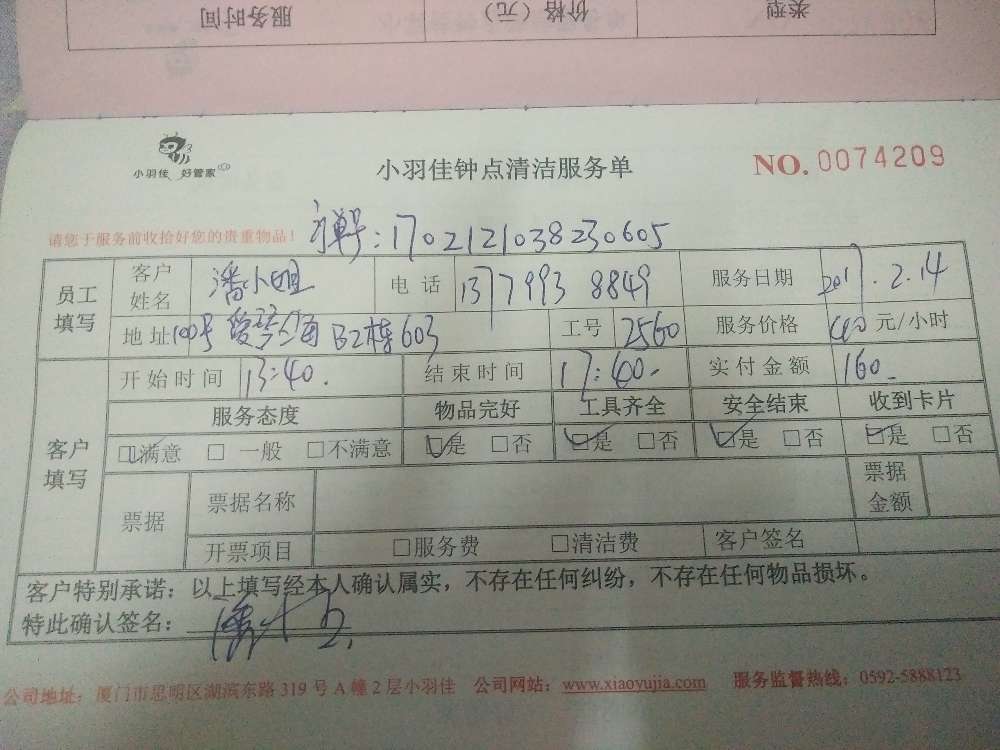 服务时间 价格（元） 类型
小羽佳 好管家
小羽佳钟点清洁服务单 NO. 0074209
请您于服务前收拾好您的贵重物品！ 单号：1702121038230605
员工填写 客户姓名 潘小姐 电话 137 7993 8849 服务日期 2017.2.14
地址 100号 B2栋603 工号 2560 服务价格 40 元/小时
客户填写 开始时间 13:40. 结束时间 17:40. 实付金额 160
服务态度 物品完好 工具齐全 安全结束 收到卡片
☑满意 □ 一般 □不满意 ☑是 □否 ☑是 □否 ☑是 □否 ☑是 □否
票据 票据名称 票据金额
开票项目 □服务费 □清洁费 客户签名
客户特别承诺：以上填写经本人确认属实，不存在任何纠纷，不存在任何物品损坏。
特此确认签名：
公司地址：厦门市思明区湖滨东路 319 号 A 幢 2 层小羽佳 公司网站：www.xiaoyujia.com 服务监督热线：0592-5888123